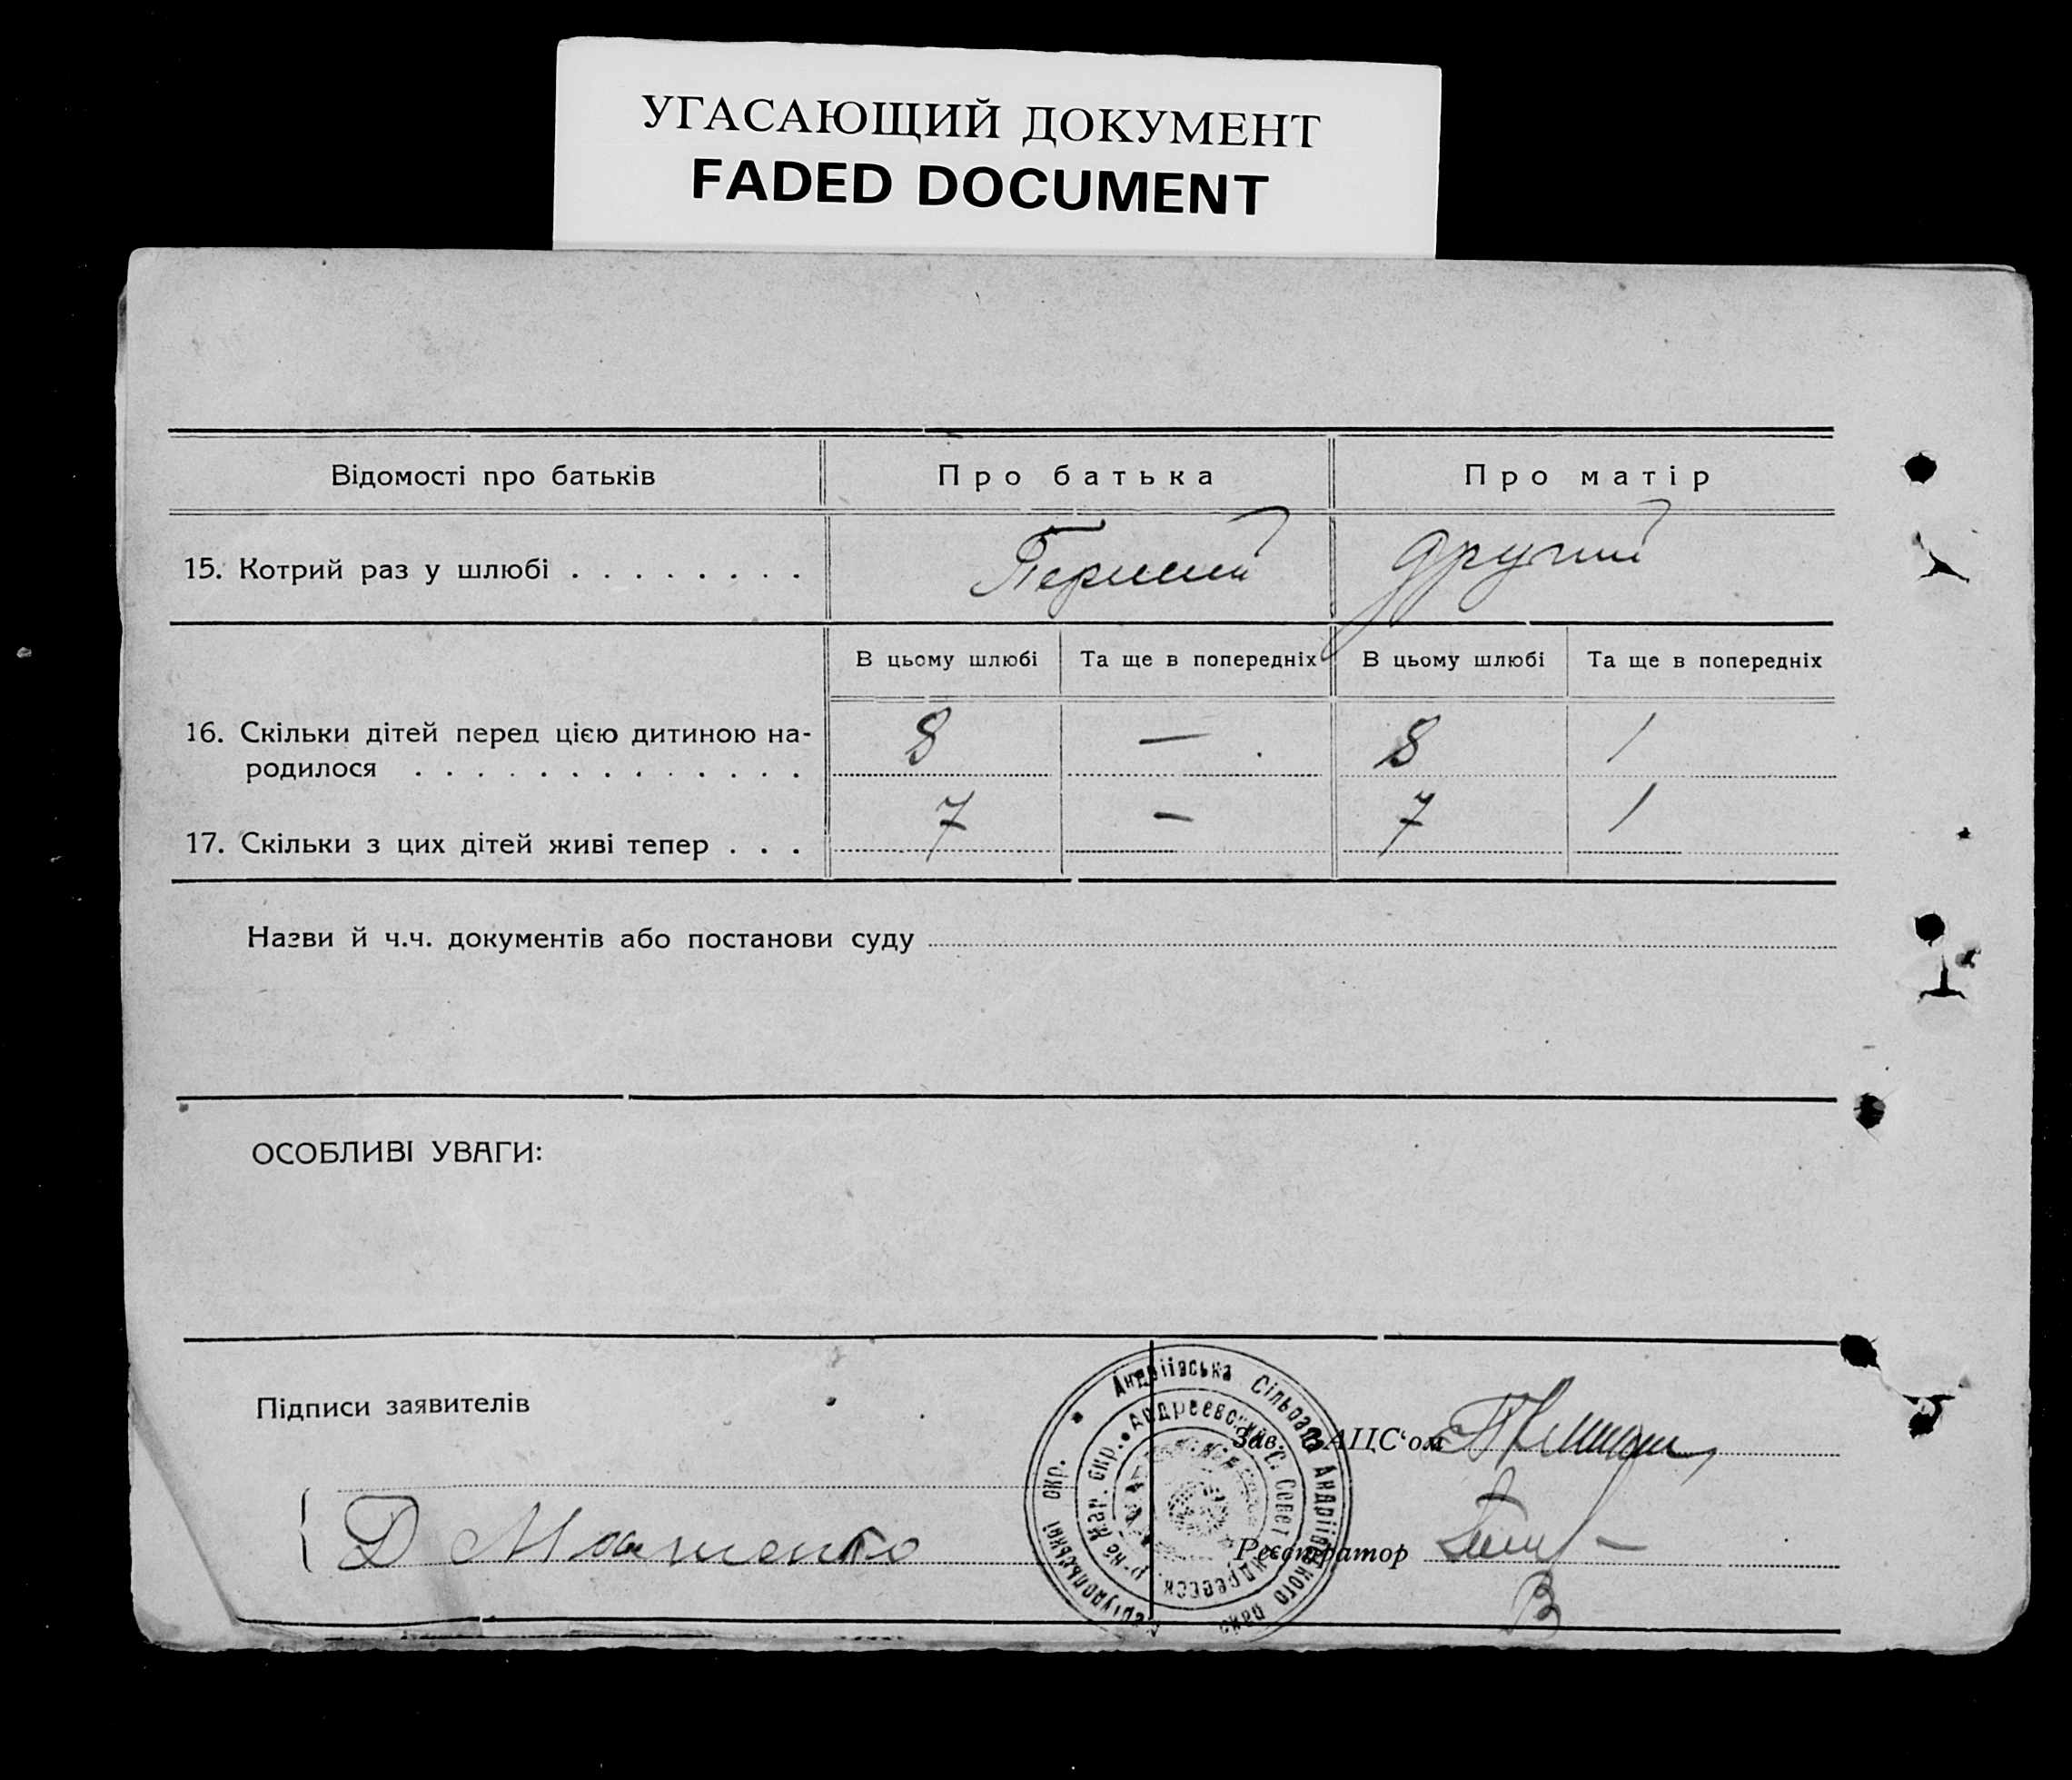 УГАСАЮЩИЙ ДОКУМЕНТ
FADED DOCUMENT
Відомості про батьків Про батька Про матір
15. Котрий раз у шлюбі . . . . . . . . Перший другий
В цьому шлюбі Та ще в попередніх В цьому шлюбі Та ще в попередніх
16. Скільки дітей перед цією дитиною на-
родилося . . . . . . . . . . . . . 8 — 8 1
17. Скільки з цих дітей живі тепер . . . 7 — 7 1
Назви й ч.ч. документів або постанови суду
ОСОБЛИВІ УВАГИ:
Підписи заявителів
Андріївська Сільрада Андріївського
окр.
Зав. ЗАЦС‘ом
Д
Реєстратор